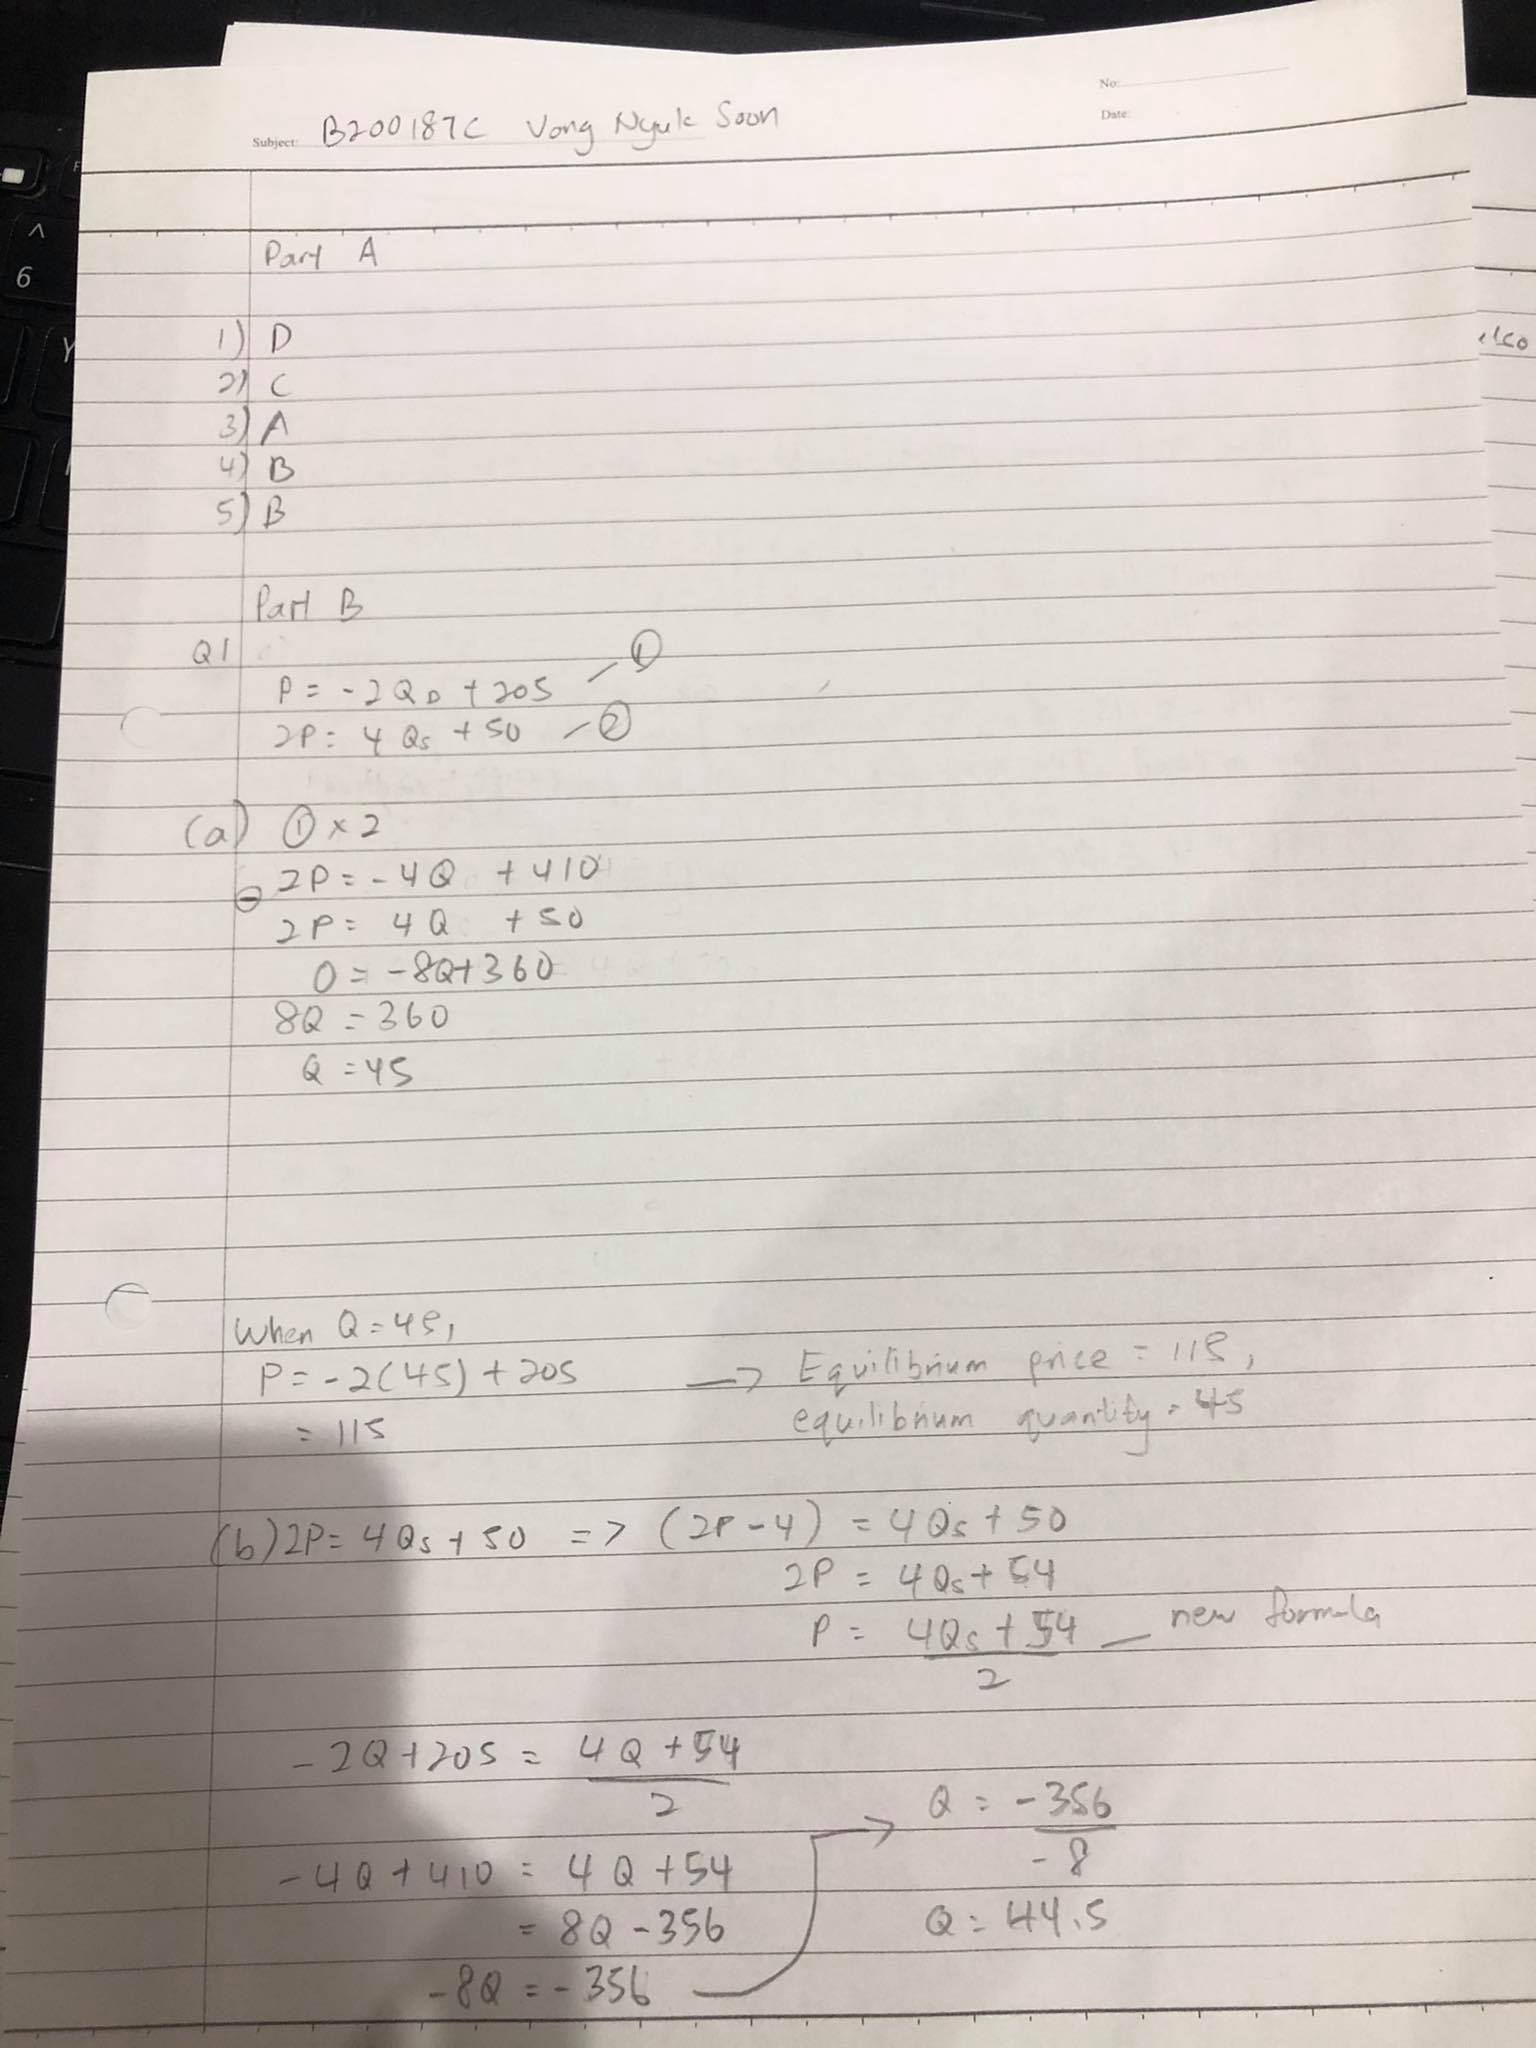 No:
Date:
Subject: B200187C Vong Nyuk Soon
Part A
1) D
2) C
3) A
4) B
5) B
Part B
Q1
P = -2QD + 205 — ①
2P = 4Qs + 50 — ②
(a) ① × 2
2P = -4Q + 410
⊖
2P = 4Q + 50
0 = -8Q + 360
8Q = 360
Q = 45
When Q = 45,
P = -2(45) + 205 → Equilibrium price = 115,
= 115 equilibrium quantity = 45
(b) 2P = 4Qs + 50 => (2P - 4) = 4Qs + 50
2P = 4Qs + 54
P = 4Qs + 54 — new formula
2
-2Q + 205 = 4Q + 54
2
-4Q + 410 = 4Q + 54
= 8Q - 356
-8Q = -356
→ Q = -356
-8
Q = 44.5
^
6
Y